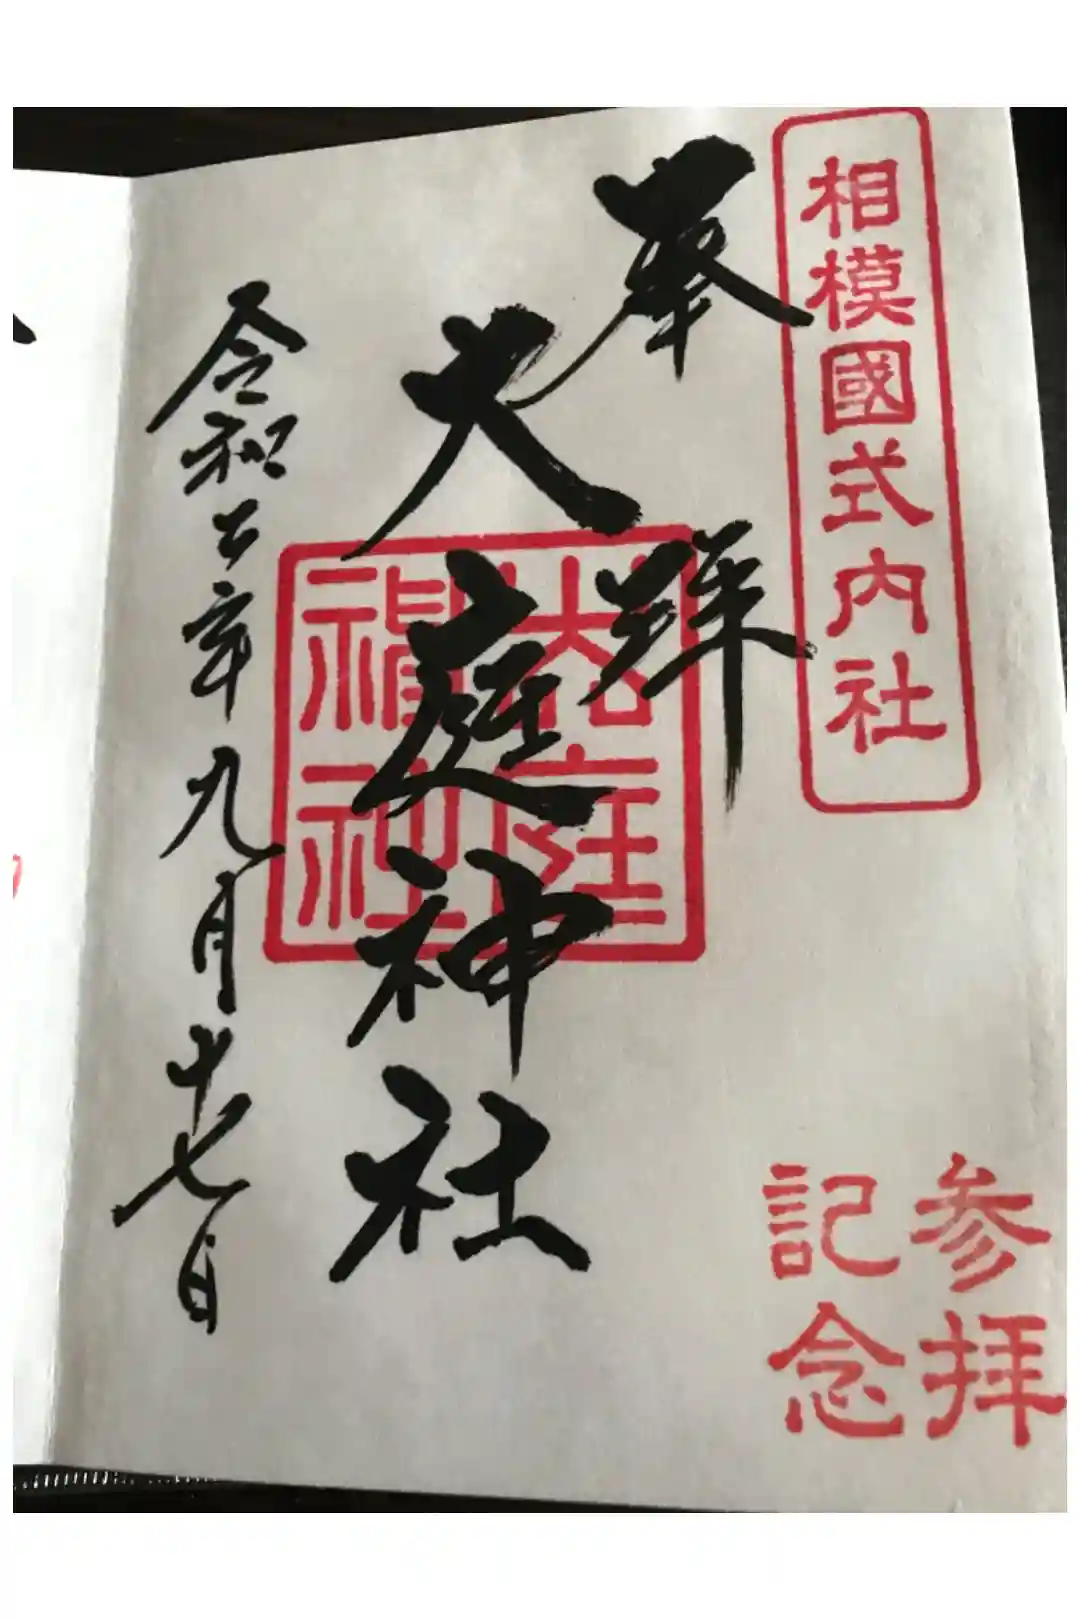 相模國式内社
奉拜
大庭神社
大庭神社
令和二年九月十七日
参拝
記念